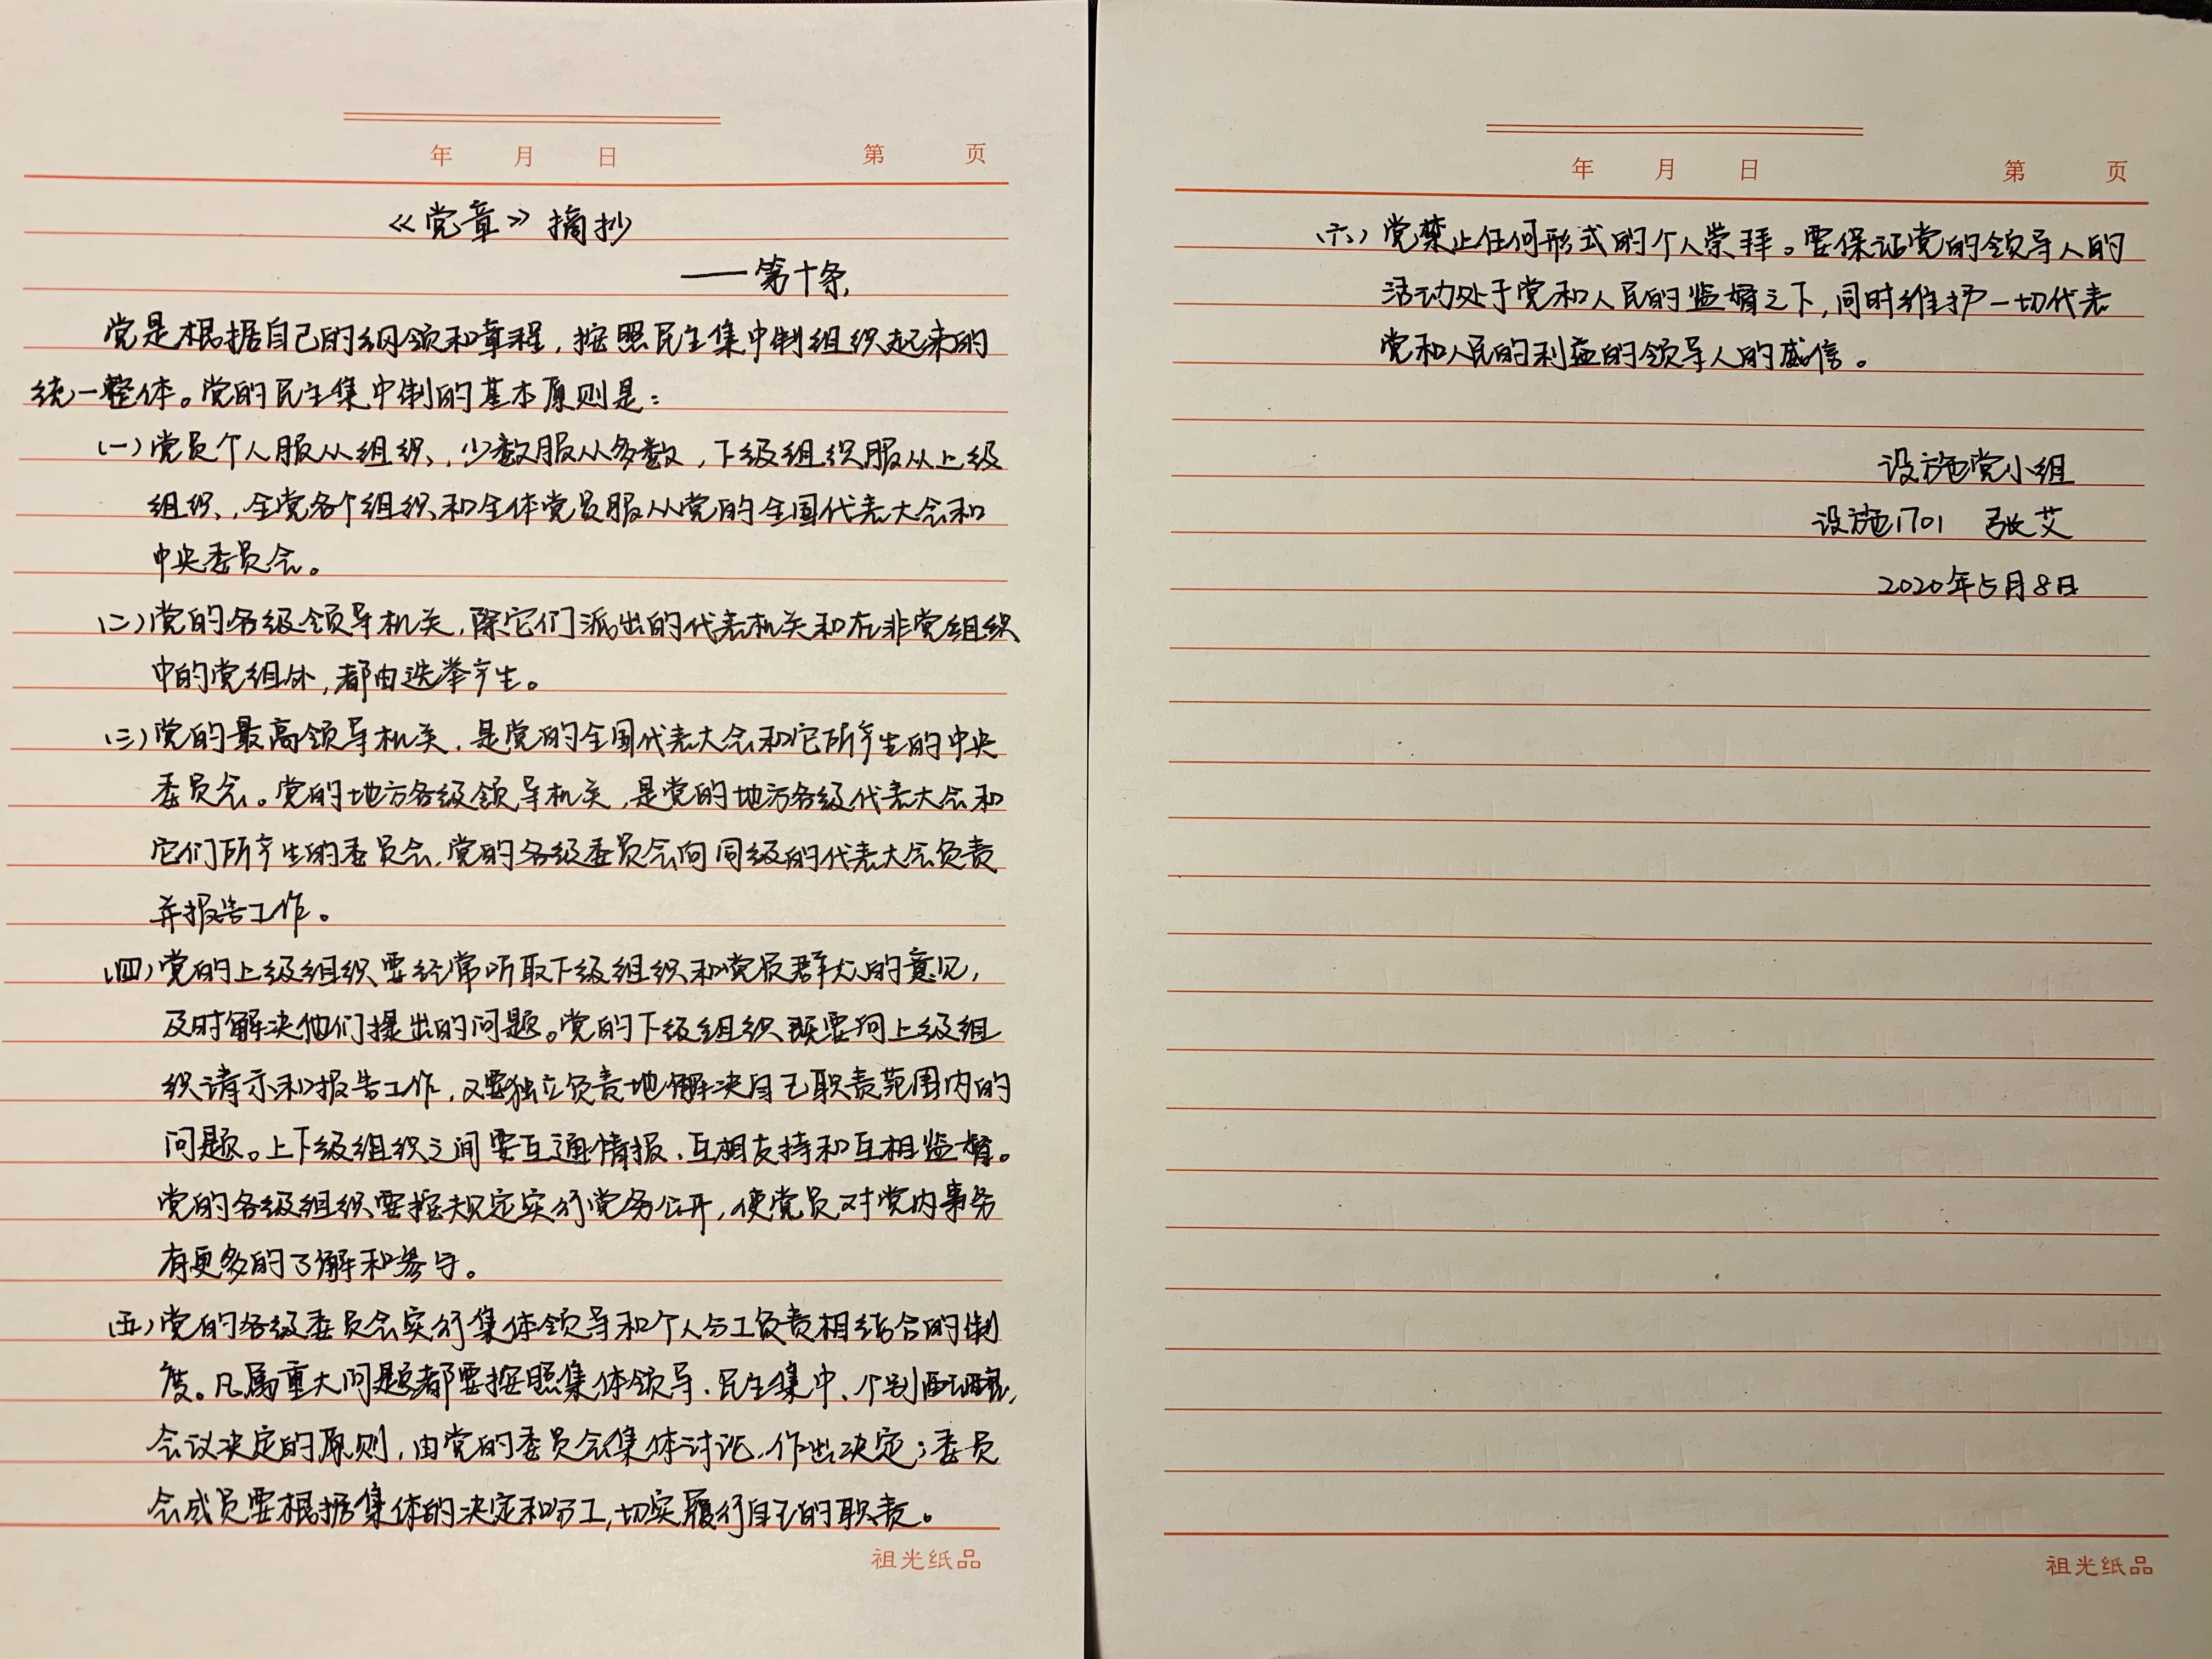 年 月 日 第 页
《党章》摘抄
——第十条
党是根据自己的纲领和章程,按照民主集中制组织起来的
统一整体。党的民主集中制的基本原则是:
(一)党员个人服从组织,少数服从多数,下级组织服从上级
组织,全党各个组织和全体党员服从党的全国代表大会和
中央委员会。
(二)党的各级领导机关,除它们派出的代表机关和在非党组织
中的党组外,都由选举产生。
(三)党的最高领导机关,是党的全国代表大会和它所产生的中央
委员会。党的地方各级领导机关,是党的地方各级代表大会和
它们所产生的委员会,党的各级委员会向同级的代表大会负责
并报告工作。
(四)党的上级组织要经常听取下级组织和党员群众的意见,
及时解决他们提出的问题。党的下级组织既要向上级组
织请示和报告工作,又要独立负责地解决自己职责范围内的
问题。上下级组织之间要互通情报、互相支持和互相监督。
党的各级组织要按规定实行党务公开,使党员对党内事务
有更多的了解和参与。
(五)党的各级委员会实行集体领导和个人分工负责相结合的制
度。凡属重大问题都要按照集体领导、民主集中、个别酝酿、
会议决定的原则,由党的委员会集体讨论,作出决定;委员
会成员要根据集体的决定和分工,切实履行自己的职责。
祖光纸品
年 月 日 第 页
(六)党禁止任何形式的个人崇拜。要保证党的领导人的
活动处于党和人民的监督之下,同时维护一切代表
党和人民的利益的领导人的威信。
设施党小组
设施1701 张艾
2020年5月8日
祖光纸品